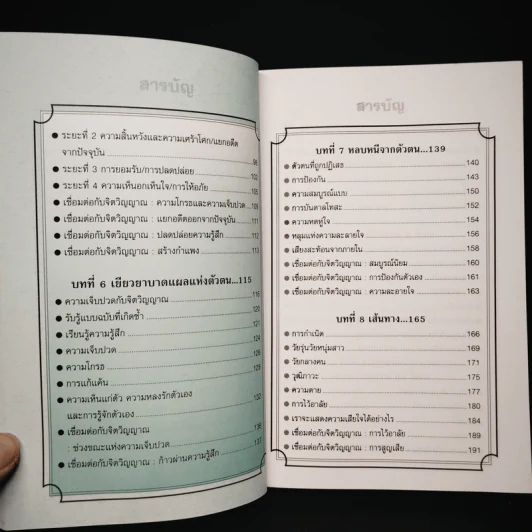 สารบัญ
ระยะที่ 2 ความสิ้นหวังและความเศร้าโศก/แยกอดีต
จากปัจจุบัน 98
ระยะที่ 3 การยอมรับ/การปลดปล่อย 102
ระยะที่ 4 ความเห็นอกเห็นใจ/การให้อภัย 105
เชื่อมต่อกับจิตวิญญาณ : ความโกรธและความเจ็บปวด 109
เชื่อมต่อกับจิตวิญญาณ : แยกอดีตออกจากปัจจุบัน 111
เชื่อมต่อกับจิตวิญญาณ : ปลดปล่อยความรู้สึก 112
เชื่อมต่อกับจิตวิญญาณ : สร้างกำแพง 113
บทที่ 6 เยียวยาบาดแผลแห่งตัวตน...115
ความเจ็บปวดกับจิตวิญญาณ 116
รับรู้แบบฉบับที่เกิดซ้ำ 120
เรียนรู้ความรู้สึก 121
ความเจ็บปวด 124
ความโกรธ 126
การแก้แค้น 129
ความเห็นแก่ตัว ความหลงรักตัวเอง
และการรู้จักตัวเอง 132
เชื่อมต่อกับจิตวิญญาณ
: ช่วงขณะแห่งความเจ็บปวด 136
เชื่อมต่อกับจิตวิญญาณ : ก้าวผ่านความรู้สึก 137
สารบัญ
บทที่ 7 หลบหนีจากตัวตน...139
ตัวตนที่ถูกปฏิเสธ 140
การป้องกัน 144
ความสมบูรณ์แบบ 150
การบันดาลโทสะ 152
ความหดหู่ใจ 154
หลุมแห่งความละลายใจ 156
เสียงสะท้อนจากภายใน 158
เชื่อมต่อกับจิตวิญญาณ : สมบูรณ์นิยม 160
เชื่อมต่อกับจิตวิญญาณ : การป้องกันตัวเอง 161
เชื่อมต่อกับจิตวิญญาณ : ความละอายใจ 163
บทที่ 8 เส้นทาง...165
การกำเนิด 166
วัยรุ่นวัยหนุ่มสาว 169
วัยกลางคน 171
วุฒิภาวะ 175
ความตาย 177
การไว้อาลัย 180
เราจะแสดงความเสียใจได้อย่างไร 184
เชื่อมต่อกับจิตวิญญาณ : การไว้อาลัย 189
เชื่อมต่อกับจิตวิญญาณ : การสูญเสีย 191